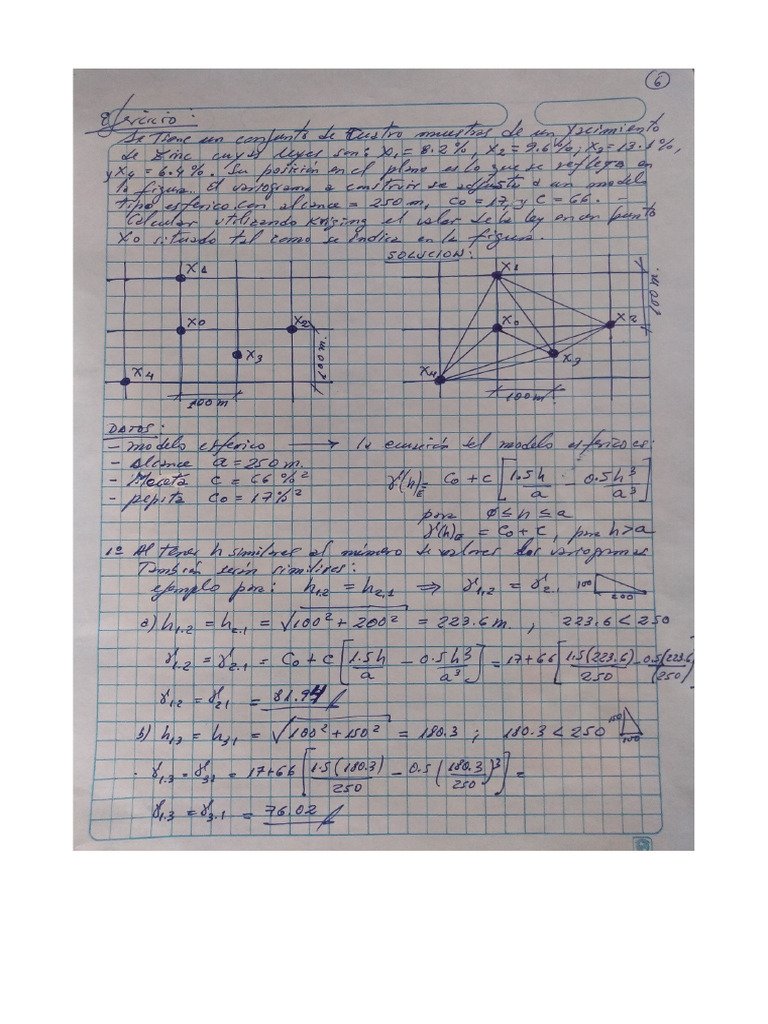 6
Ejercicio:
Se tiene un conjunto de cuatro muestras de un yacimiento
de Zinc cuyas leyes son: X1 = 8.2%, X2 = 9.6%; X3 = 13.1%,
y X4 = 6.4%. Su posición en el plano es lo que se refleja en
la figura. El variograma a construir se adjusta a un modelo
tipo esferico con alcance = 250 m, Co = 17, y C = 66. -
Calcular utilizando Kriging el valor de la ley en un punto
Xo situado tal como se indica en la figura.
SOLUCION:
X1
Xo
X2
X3
X4
100m
100m.
X1
Xo
X2
X3
X4
100m.
100m.
DATOS:
- modelo esferico → la ecuación del modelo esferico es:
- Alcance a = 250 m.
- Meseta C = 66 %²
- pepita Co = 17%²
γ(h)E = Co + C [1.5h/a - 0.5h³/a³]
para 0 ≤ h ≤ a
γ(h)E = Co + C, para h > a
1º Al tener h similares al número de valores los variogramas
También serán similares:
ejemplo para: h1.2 = h2,1 ⇒ γ1.2 = γ2.1
100
200
a) h1.2 = h2.1 = √100² + 200² = 223.6 m. ; 223.6 < 250
γ1.2 = γ2.1 = Co + C [1.5h/a - 0.5h³/a³] = 17+66 [1.5(223.6)/250 - 0.5(223.6/(250)
γ12 = γ21 = 81.94
b) h13 = h31 = √100² + 150² = 180.3 ; 180.3 < 250
150
100
γ1.3 = γ31 = 17+66 [1.5(180.3)/250 - 0.5(180.3/250)³] =
γ1.3 = γ3.1 = 76.02